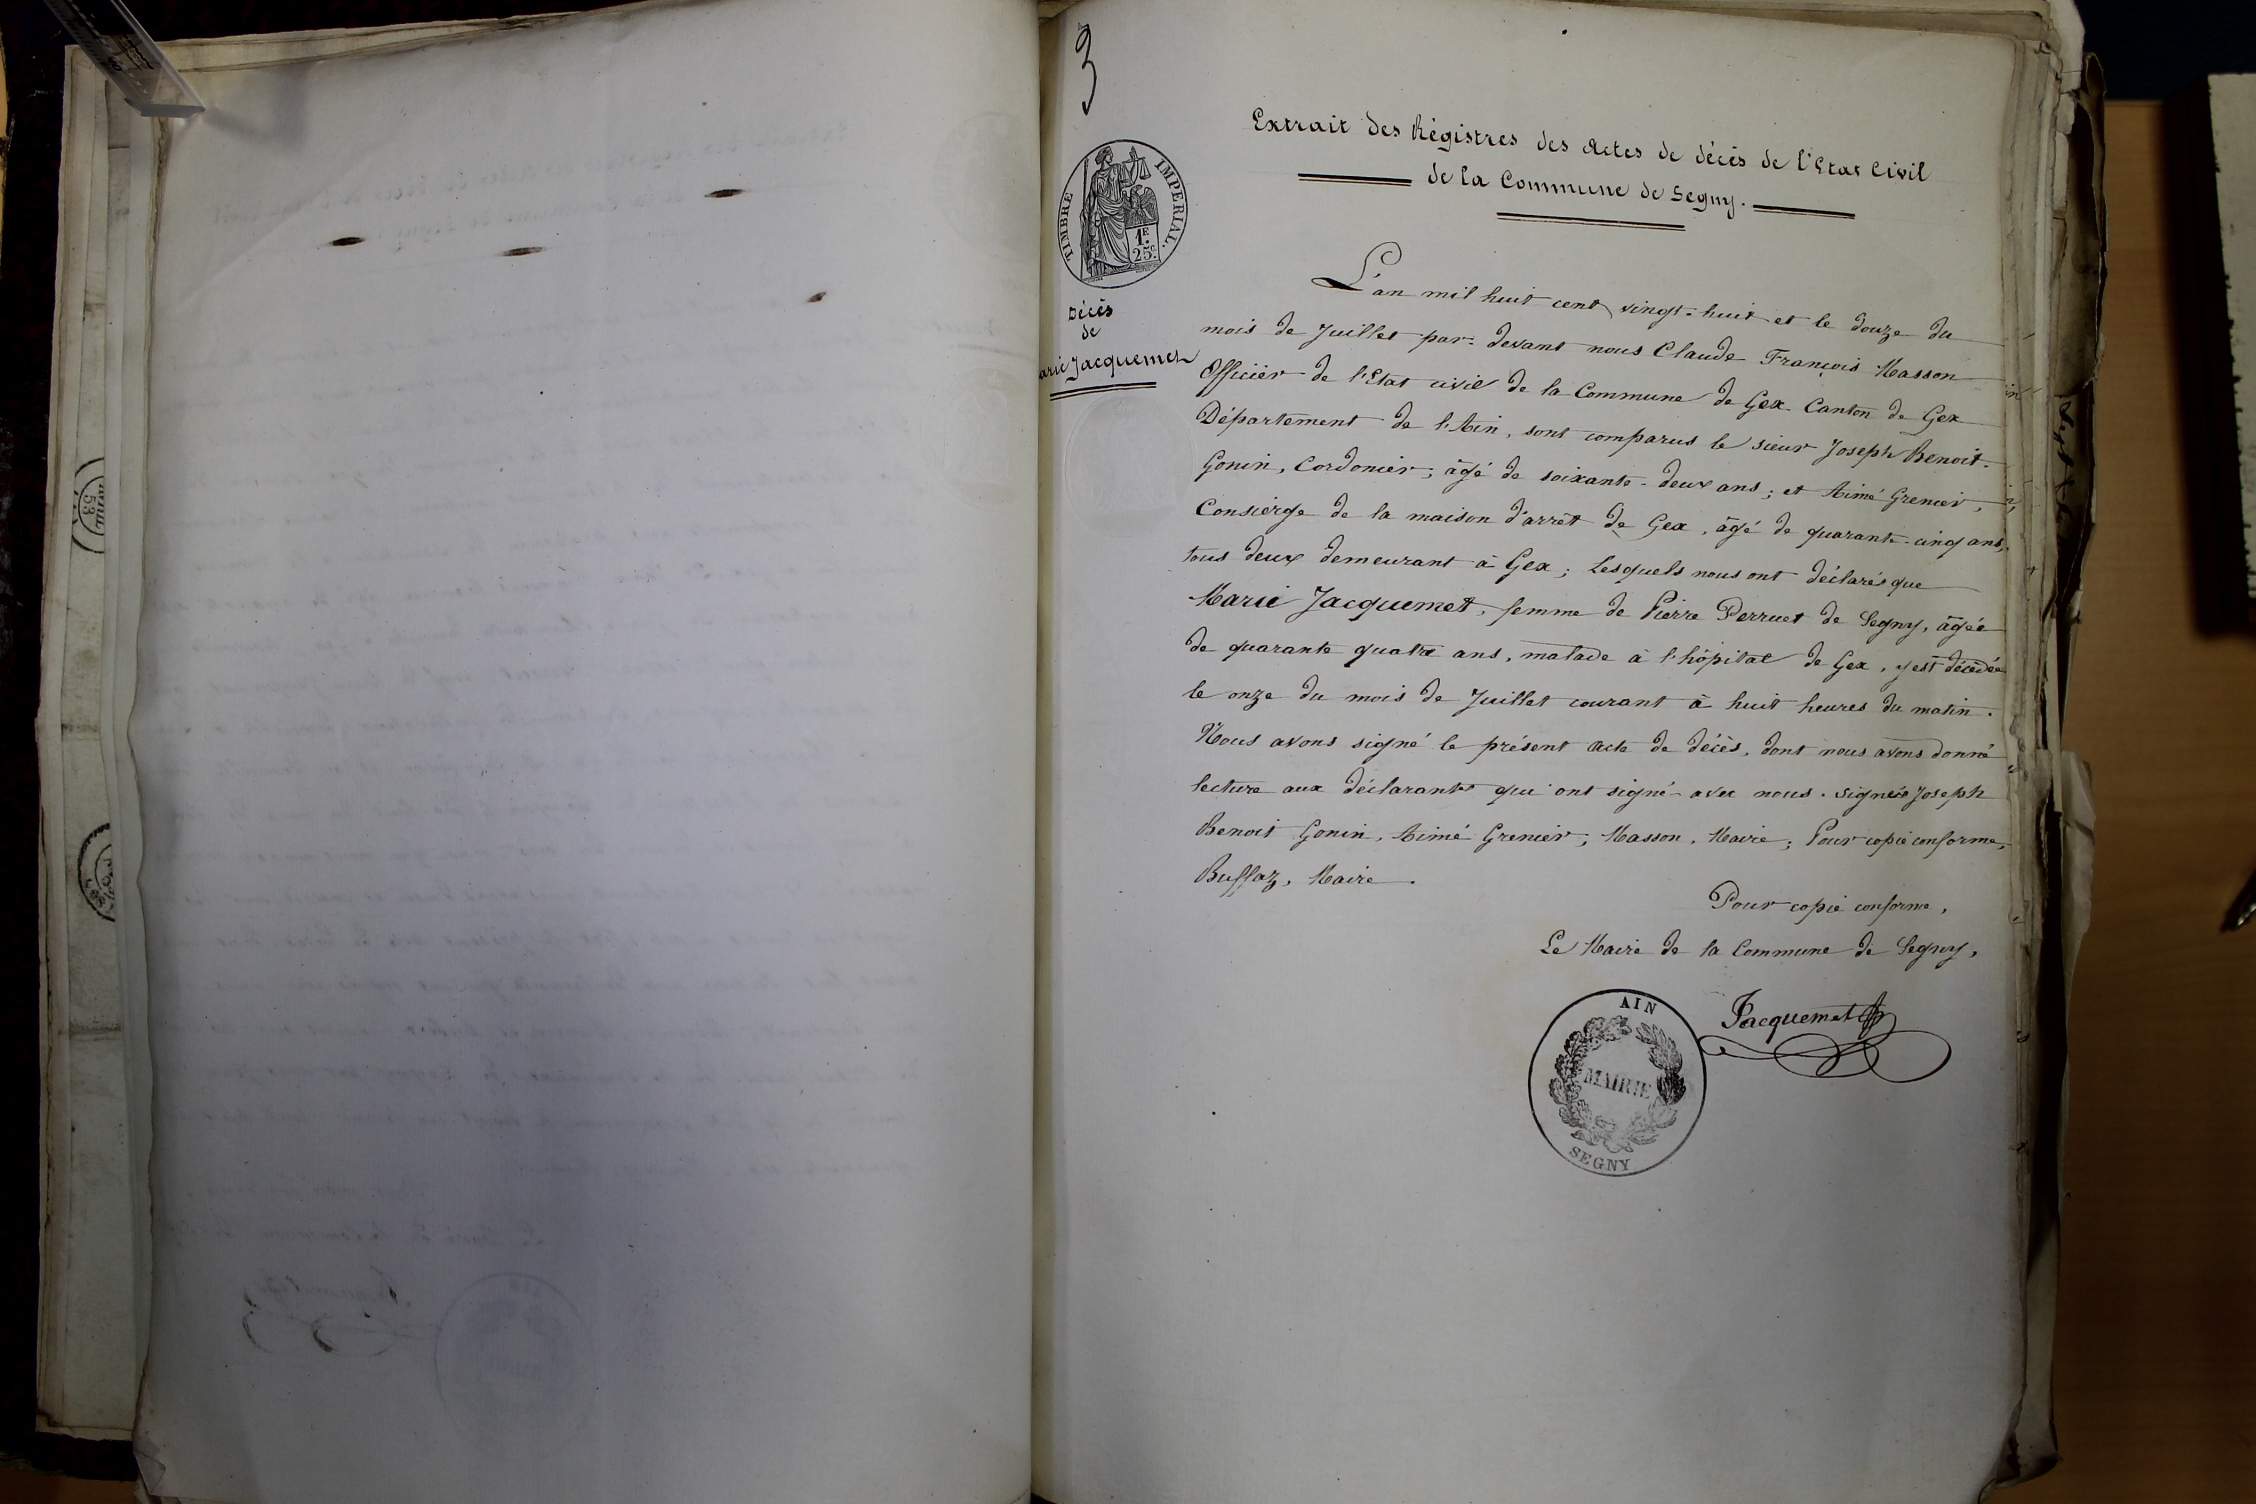 3
Extrait des Régistres des Actes de décès de l'Etat Civil
de la Commune de Segny.
TIMBRE IMPÉRIAL.
1F.
25c.
Décès
de
arie Jacquemet
L'an mil huit cent vingt-huit et le douze du
mois de Juillet par-devant nous Claude François Masson
Officier de l'Etat civil de la Commune de Gex Canton de Gex
Département de l'Ain, sont comparus le sieur Joseph Benoit-
Gonin, Cordonier, âgé de soixante-deux ans; et Aimé Grenier,
Consierge de la maison d'arrêt de Gex, âgé de quarante-cinq ans,
tous deux demeurant à Gex; Lesquels nous ont déclarés que
Marie Jacquemet, femme de Pierre Perruet de Segny, âgée
de quarante quatre ans, malade à l'hôpital de Gex, y est décédée
le onze du mois de Juillet courant à huit heures du matin.
Nous avons signé le présent acte de décès, dont nous avons donné
lecture aux déclarants qui ont signé avec nous. Signés Joseph
Benoit Gonin, Aimé Grenier, Masson, Maire; Pour copie conforme,
Buffaz, Maire.
Pour copie conforme,
Le Maire de la Commune de Segny,
Jacquemet
AIN
MAIRIE
SEGNY